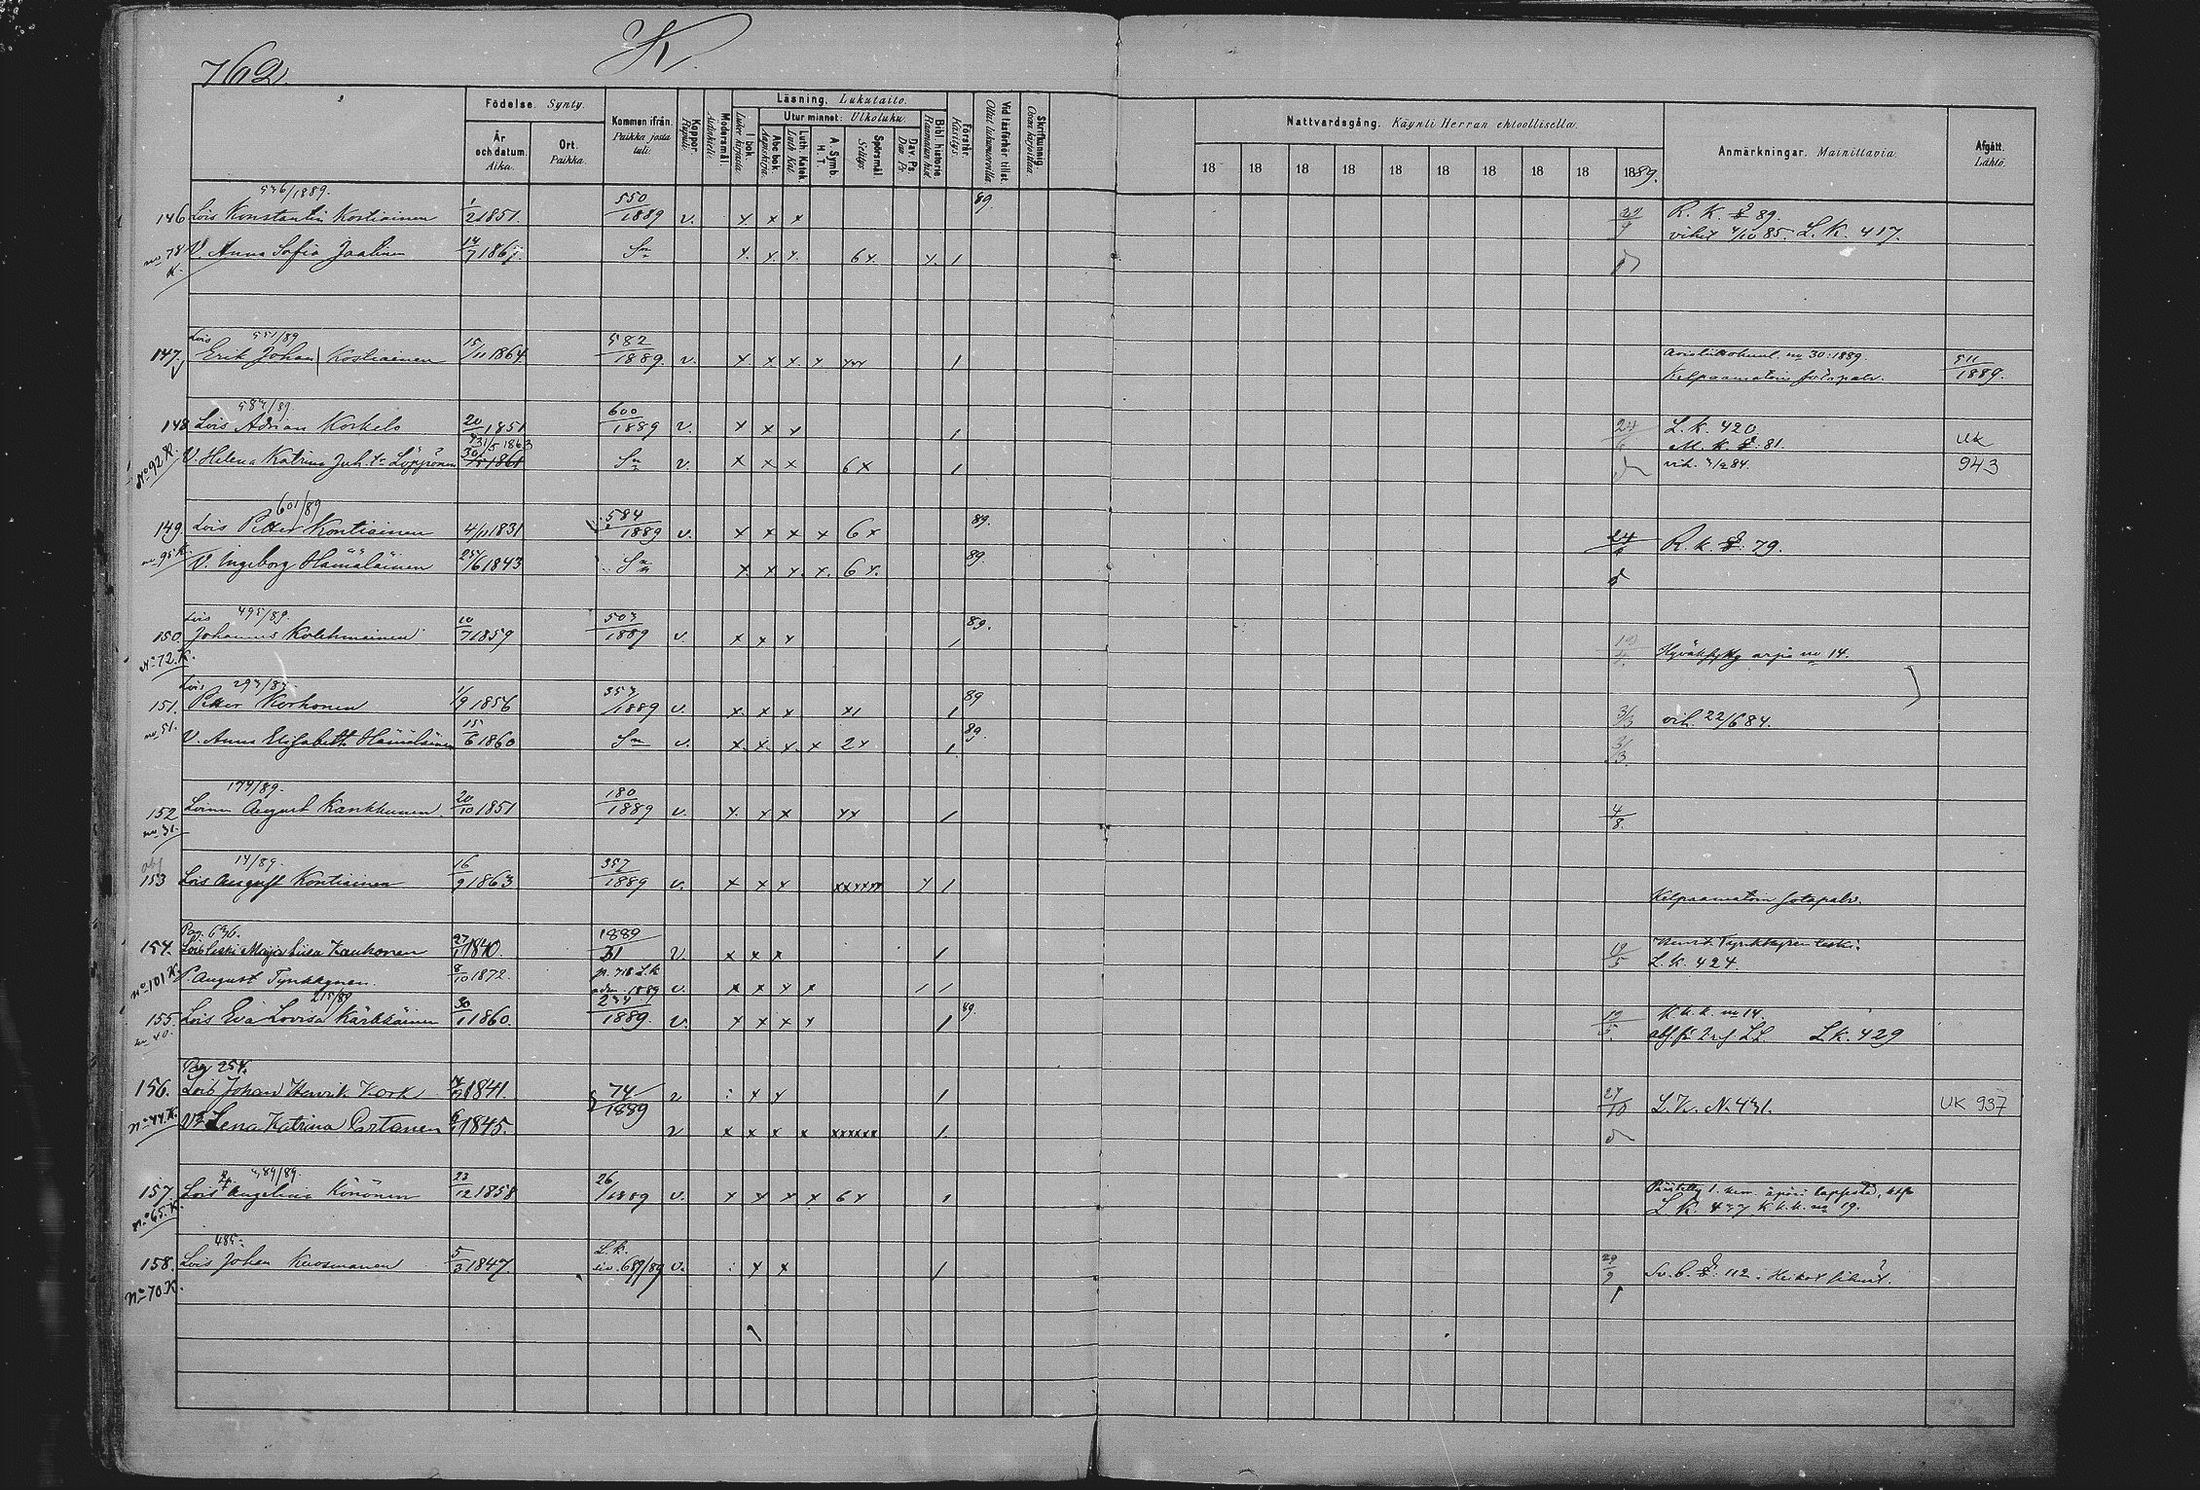 762.
K.
Födelse. Synty.
År och datum. Aika.
Ort. Paikka.
Kommen ifrån. Paikka josta tuli.
Koppor. Rupuli.
Modersmål Äidinkieli
Läsning. Lukutaito.
I bok. Luku kirjasta.
Utur minnet: Ulkoluku.
Abc bok. Aapiskirja.
Luth. Katek. Luth. Kat.
A. Symb. H. T.
Spörsmål Selitys.
Dav. Ps. Dav. Ps.
Bibl. historie Raamatun hist.
Förstår. Käsitys.
Vid läsförhör tillst. Ollut lukuvuorolla.
Skrifkunnig. Osaa kirjoittaa.
Nattvardsgång. Käynti Herran ehtoollisella.
18 18 18 18 18 18 18 18 18 1889.
Anmärkningar. Mainittavia.
Afgått. Lähtö.
536/1889.
146 Lois Konstantin Kostiainen 1/2 1851. 550/1889 v. x x x 89. R. K. 89.
vihit 4/10 85. L. K. 417.
no 78 K. V. Anna Sofia Jaatinen 14/7 1867. Sn x. x. x. 6 x. x. 1
551/89
147. Lois Erik Johan Kostiainen 15/11 1864. 582/1889. v. x x x x xxx 1 no 30:1889. 511/1889.
Kelpaamatoin sotapalv.
587/89.
148 Lois Adrian Korkelo 20 1851 600/1889 v. x x x 1 24/6 L. K. 420
31/5 1863 M. K. 81. UK
No 92 K. V. Helena Katrina Juh. tr Löppönen 30 1861 Sn v. x x x 6 x 1 vih. 84. 943
601/89
149. Lois Petter Kontiainen 4/11 1831 584/1889 v. x x x x 6 x 89. 24 R. K. 79.
no 95 K. V. Ingeborg Hämäläinen 25/6 1843 Sn x. x. x. x. 6 x. 89.
495/89.
150. Lois Johannes Kolehmainen 10/7 1859 503/1889 v. x x x 1 89. arpia no 14.
No 72. K.
293/89.
151. Lois Petter Korhonen 1/9 1856 353/1889 v. x. x x x1 1 89 3/3 vih. 22/6 84.
no 51. V. Anna Elisabeth Hämäläinen 15/6 1860 Sn v. x. x. x. x 2 x 1 89. 3/3
174/89.
152 Loinen August Kankkunen 20/10 1851 180/1889 v. x. x x xx 1 4/8.
no 31.
14/89.
153 Lois August Kontiainen 16/9 1863 357/1889 v. x x x xxxxxx x 1
Kelpaamatoin sotapalv.
Pag. 636.
154. Loisleski Maija Liisa Kaukonen 27/1 1840. 1889/31 v x x x 1 19/5 Tynkkysen leski.
L. K. 424.
No 101 K. P. August Tynkkynen. 8/10 1872. p. 718 L.K. 1889 v. x x x x 1 1
215/89
155. Lois Eva Lovisa Kärkkäinen 30/1 1860. 234/1889. v. x x x x 1 89. 19/5. K. k. k. no 14.
no 40. L. K. 429
Pag 254.
156. Lois Johan Henrik Kork 1841. 74/1889 v x x 1 27/10 L. K. No 431. UK 937
No 44 K. V Lena Katrina Partanen 6 1845. v x x x x xxxxxx 1.
89/89.
157. Lois Angelina Könönen 23/12 1858 26/1889 v. x x x x 6 x 1
No 65. K. L. K. K. k. k. no 19.
485.
158. Lois Johan Kuosmanen 5/3 1847. L.K. siv. 689/89 v. x x 1 29/9 112. Heikot
No 70 K.